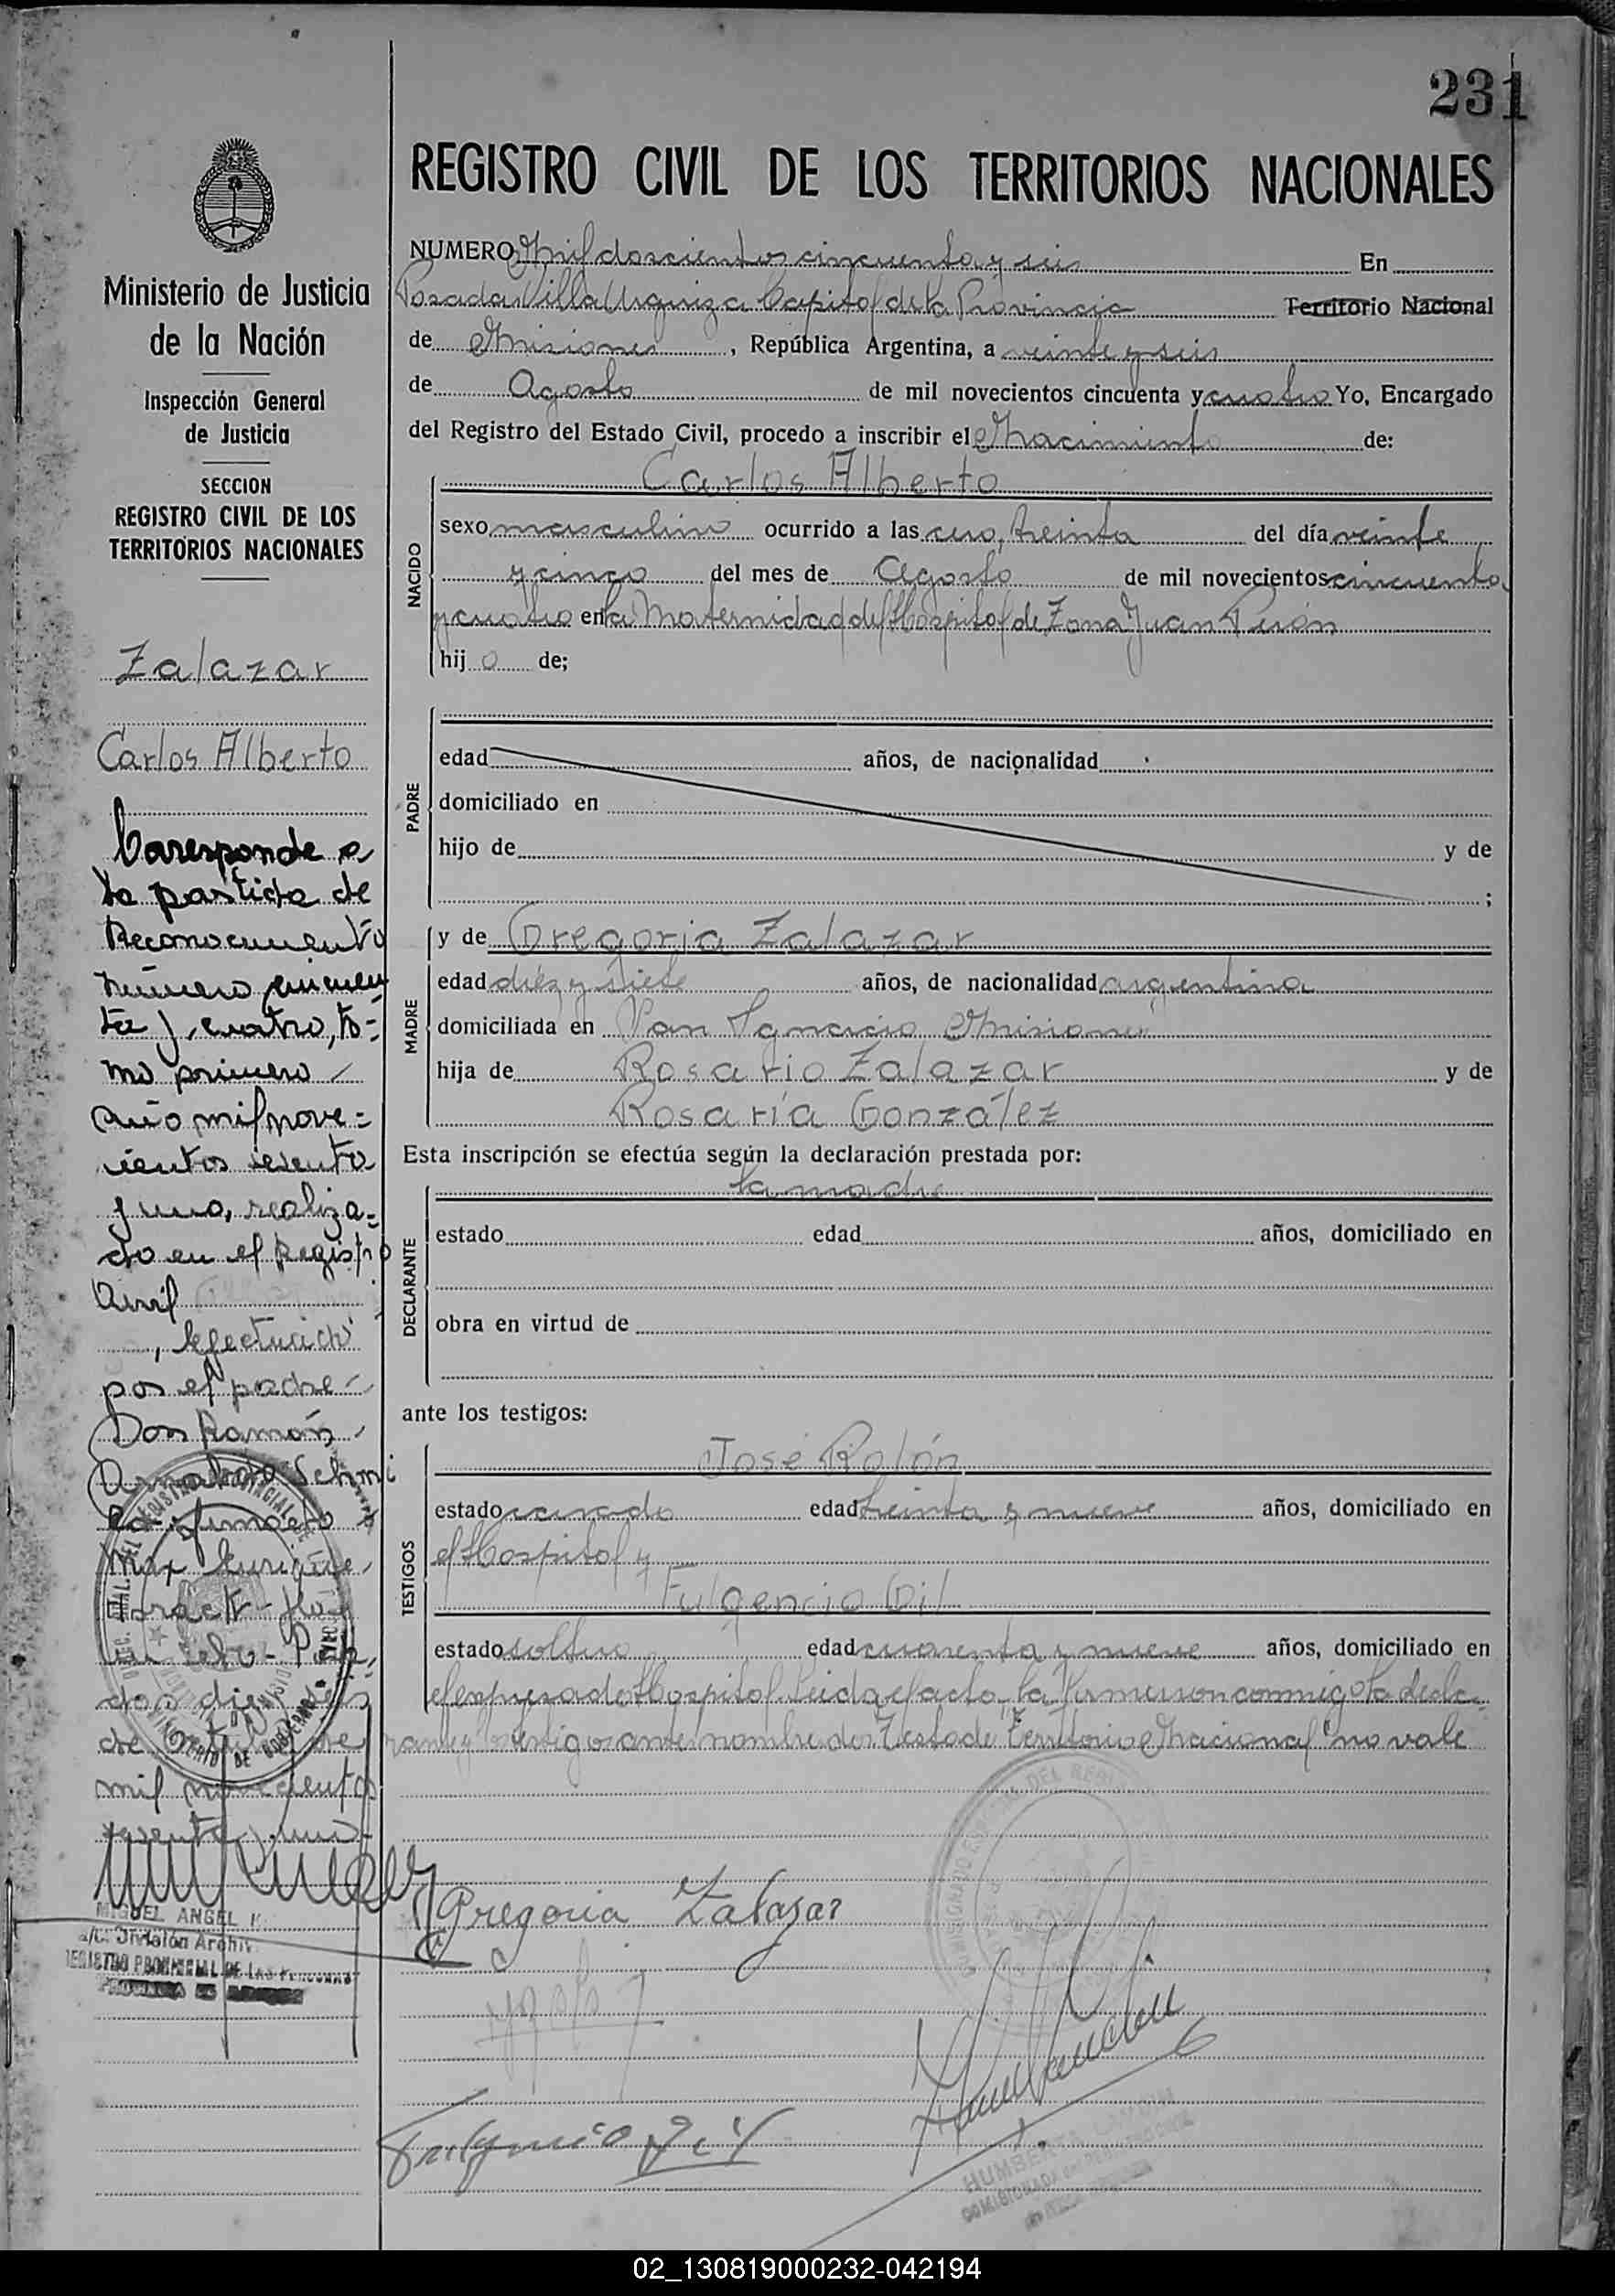 231
REGISTRO CIVIL DE LOS TERRITORIOS NACIONALES
Ministerio de Justicia
de la Nación
Inspección General
de Justicia
SECCION
REGISTRO CIVIL DE LOS
TERRITORIOS NACIONALES
Zalazar
Carlos Alberto
Corresponde a
la partida de
Reconocimiento
número cincuen
ta y cuatro, to=
mo primero
año mil nove=
cientos sesenta
y uno, realiza=
do en el Registro
Civil
, efectuado
por el padre
Don Ramón
Max Enrique
mil novecientos
sesenta y uno
MIGUEL ANGEL
a/c. División Archiv
REGISTRO PROVINCIAL DE LAS PERSONAS
NUMERO Mil doscientos cincuenta y seis En
Posadas Villa Urquiza Capital de la Provincia Territorio Nacional
de Misiones, República Argentina, a veinte y seis
de Agosto de mil novecientos cincuenta y cuatro Yo, Encargado
del Registro del Estado Civil, procedo a inscribir el Nacimiento de:
Carlos Alberto
NACIDO
sexo masculino ocurrido a las cero, treinta del día veinte
y cinco del mes de Agosto de mil novecientos cincuenta
y cuatro en la Maternidad del Hospital de Zona Juan Perón
hijo de;
PADRE
edad años, de nacionalidad
domiciliado en
hijo de y de
;
y de Gregoria Zalazar
MADRE
edad diez y siete años, de nacionalidad argentina
domiciliada en San Ignacio Misiones
hija de Rosario Zalazar y de
Rosaría González
Esta inscripción se efectúa según la declaración prestada por:
la madre
DECLARANTE
estado edad años, domiciliado en
obra en virtud de
ante los testigos:
José Rolón
TESTIGOS
estado casado edad treinta y nueve años, domiciliado en
el Hospital y
Fulgencio Gil
estado soltero edad cuarenta y nueve años, domiciliado en
el expresado Hospital Leida el acta, la firmaron conmigo la decla-
rante y los testigos antes nombrados Testado: Territorio Nacional "no vale
Gregoria Zalazar
Fulgencio Gil
HUMBERTO
02_130819000232-042194